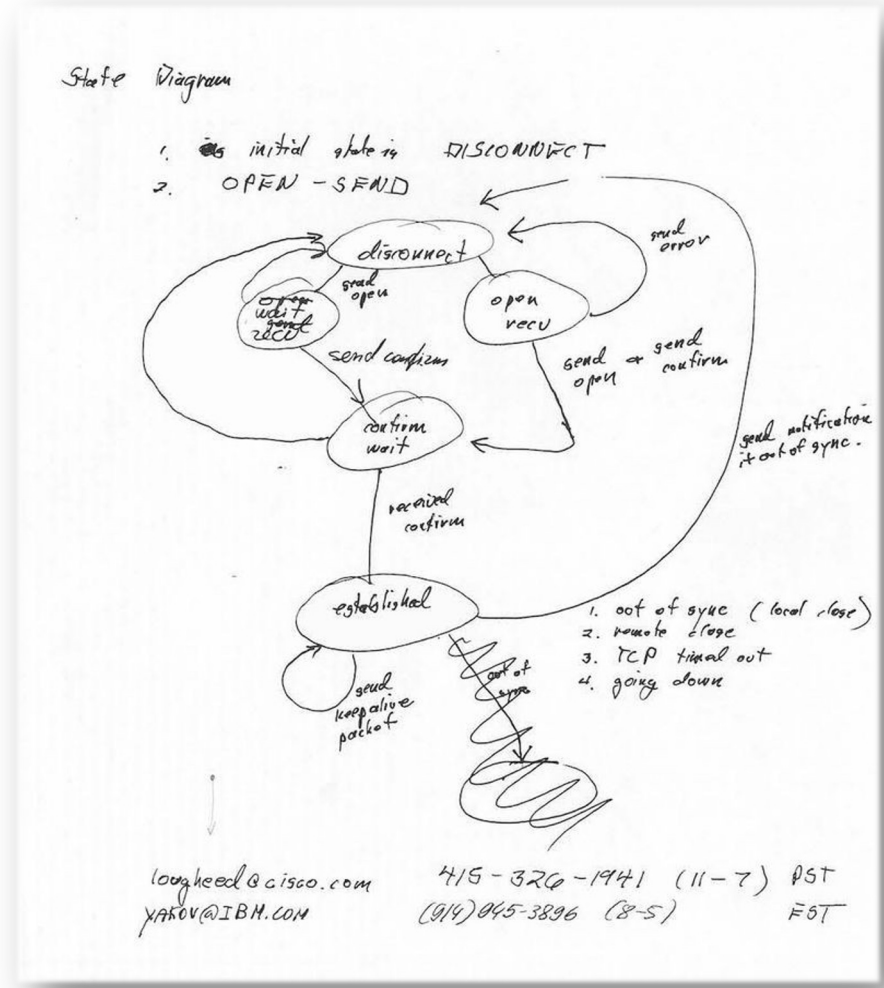 State Diagram
1. initial state is DISCONNECT
2. OPEN - SEND
disconnect
send
error
send
open
open
wait
recv
open
recv
send confirm
send open & send confirm
confirm
wait
send notification
if out of sync.
received
confirm
established
1. out of sync (local close)
2. remote close
3. TCP timed out
4. going down
out of
sync
send
keepalive
packet
lougheed@cisco.com 415-326-1941 (11-7) PST
YAKOV@IBM.COM (914)945-3896 (8-5) EST